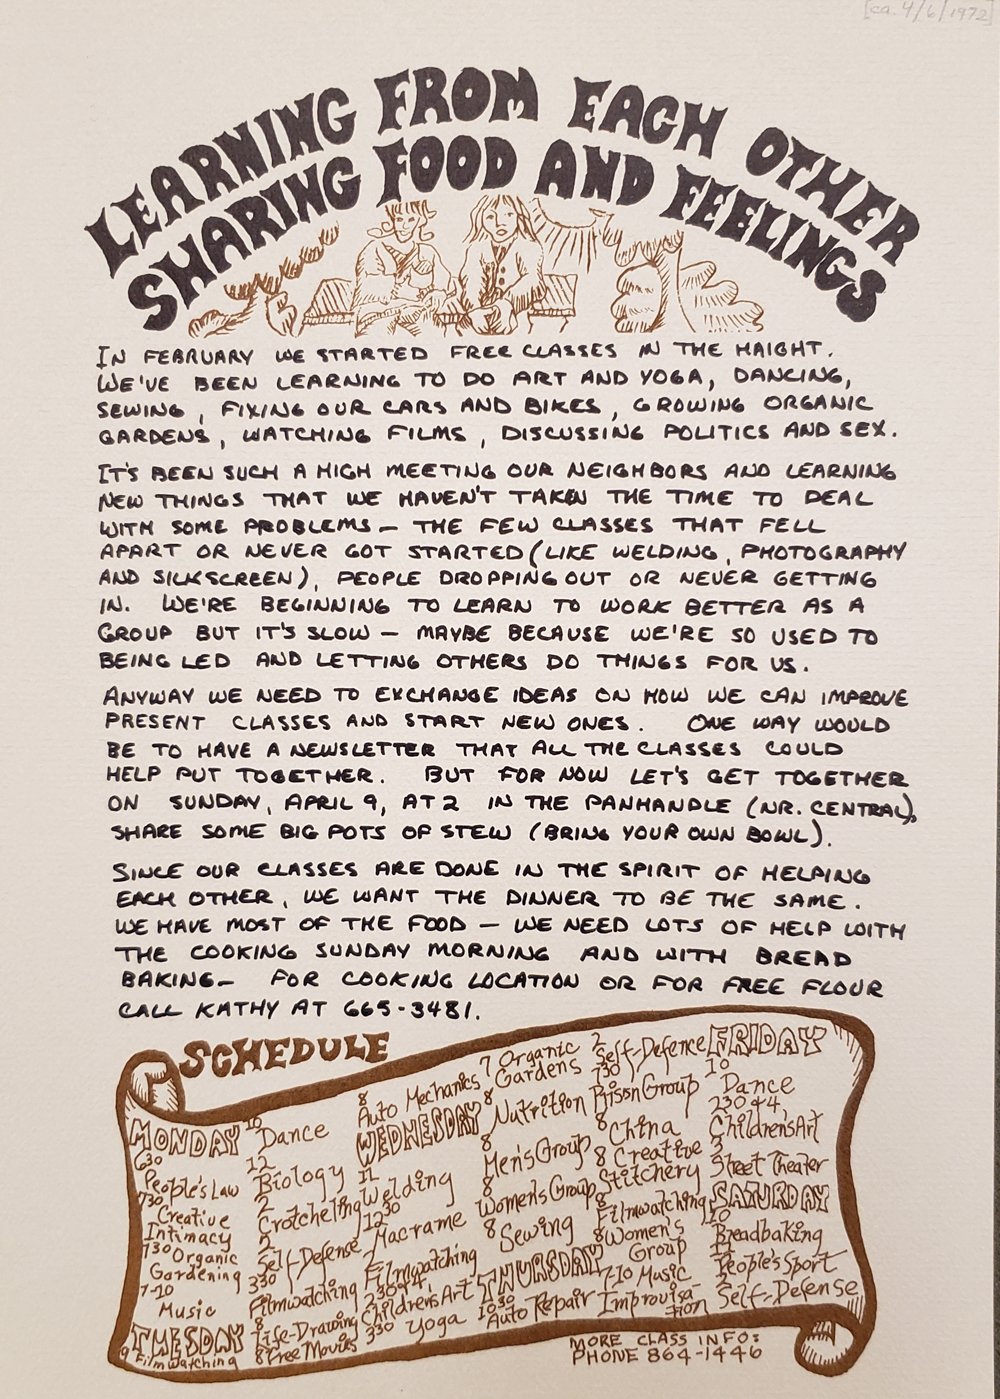 [ca. 4/6/1972]
LEARNING FROM EACH OTHER
SHARING FOOD AND FEELINGS
IN FEBRUARY WE STARTED FREE CLASSES IN THE HAIGHT.
WE'VE BEEN LEARNING TO DO ART AND YOGA, DANCING,
SEWING, FIXING OUR CARS AND BIKES, GROWING ORGANIC
GARDENS, WATCHING FILMS, DISCUSSING POLITICS AND SEX.
IT'S BEEN SUCH A HIGH MEETING OUR NEIGHBORS AND LEARNING
NEW THINGS THAT WE HAVEN'T TAKEN THE TIME TO DEAL
WITH SOME PROBLEMS — THE FEW CLASSES THAT FELL
APART OR NEVER GOT STARTED (LIKE WELDING, PHOTOGRAPHY
AND SILKSCREEN), PEOPLE DROPPING OUT OR NEVER GETTING
IN. WE'RE BEGINNING TO LEARN TO WORK BETTER AS A
GROUP BUT IT'S SLOW — MAYBE BECAUSE WE'RE SO USED TO
BEING LED AND LETTING OTHERS DO THINGS FOR US.
ANYWAY WE NEED TO EXCHANGE IDEAS ON HOW WE CAN IMPROVE
PRESENT CLASSES AND START NEW ONES. ONE WAY WOULD
BE TO HAVE A NEWSLETTER THAT ALL THE CLASSES COULD
HELP PUT TOGETHER. BUT FOR NOW LET'S GET TOGETHER
ON SUNDAY, APRIL 9, AT 2 IN THE PANHANDLE (NR. CENTRAL),
SHARE SOME BIG POTS OF STEW (BRING YOUR OWN BOWL).
SINCE OUR CLASSES ARE DONE IN THE SPIRIT OF HELPING
EACH OTHER, WE WANT THE DINNER TO BE THE SAME.
WE HAVE MOST OF THE FOOD — WE NEED LOTS OF HELP WITH
THE COOKING SUNDAY MORNING AND WITH BREAD
BAKING — FOR COOKING LOCATION OR FOR FREE FLOUR
CALL KATHY AT 665-3481.
SCHEDULE
MONDAY
630
People's Law
730
Creative
Intimacy
730 Organic
Gardening
7-10
Music
TUESDAY
9 Filmwatching
10
Dance
12
Biology
2
Crotcheling
2
Self-Defense
330
Filmwatching
8
Life-Drawing
8 Free Movies
8
Auto Mechanics
WEDNESDAY
11
Welding
1230
Macrame
Filmwatching
230 & 4
Children's Art
330 Yoga
7 Organic
Gardens
8
Nutrition
8
Men's Group
8
Women's Group
8 Sewing
THURSDAY
1030
Auto Repair
2
Self-Defense
730
Prison Group
8
China
8 Creative
Stitchery
8
Filmwatching
8 Women's
Group
7-10 Music
Improvisa-
tion
FRIDAY
10
Dance
230 & 4
Children's Art
3
Street Theater
SATURDAY
10
Breadbaking
People's Sport
2
Self-Defense
MORE CLASS INFO:
PHONE 864-1446